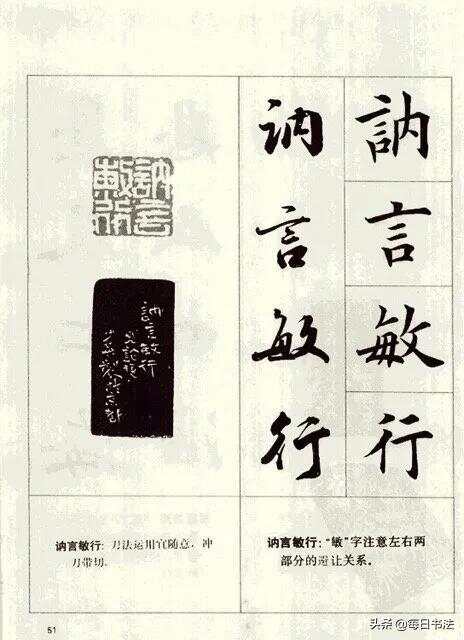 訥言敏行
訥言敏行
訥言敏行
訥言敏行
讷言敏行：“敏”字注意左右两
部分的避让关系。
讷言敏行：刀法运用宜随意，冲
刀带切。
51
头条 @每日书法